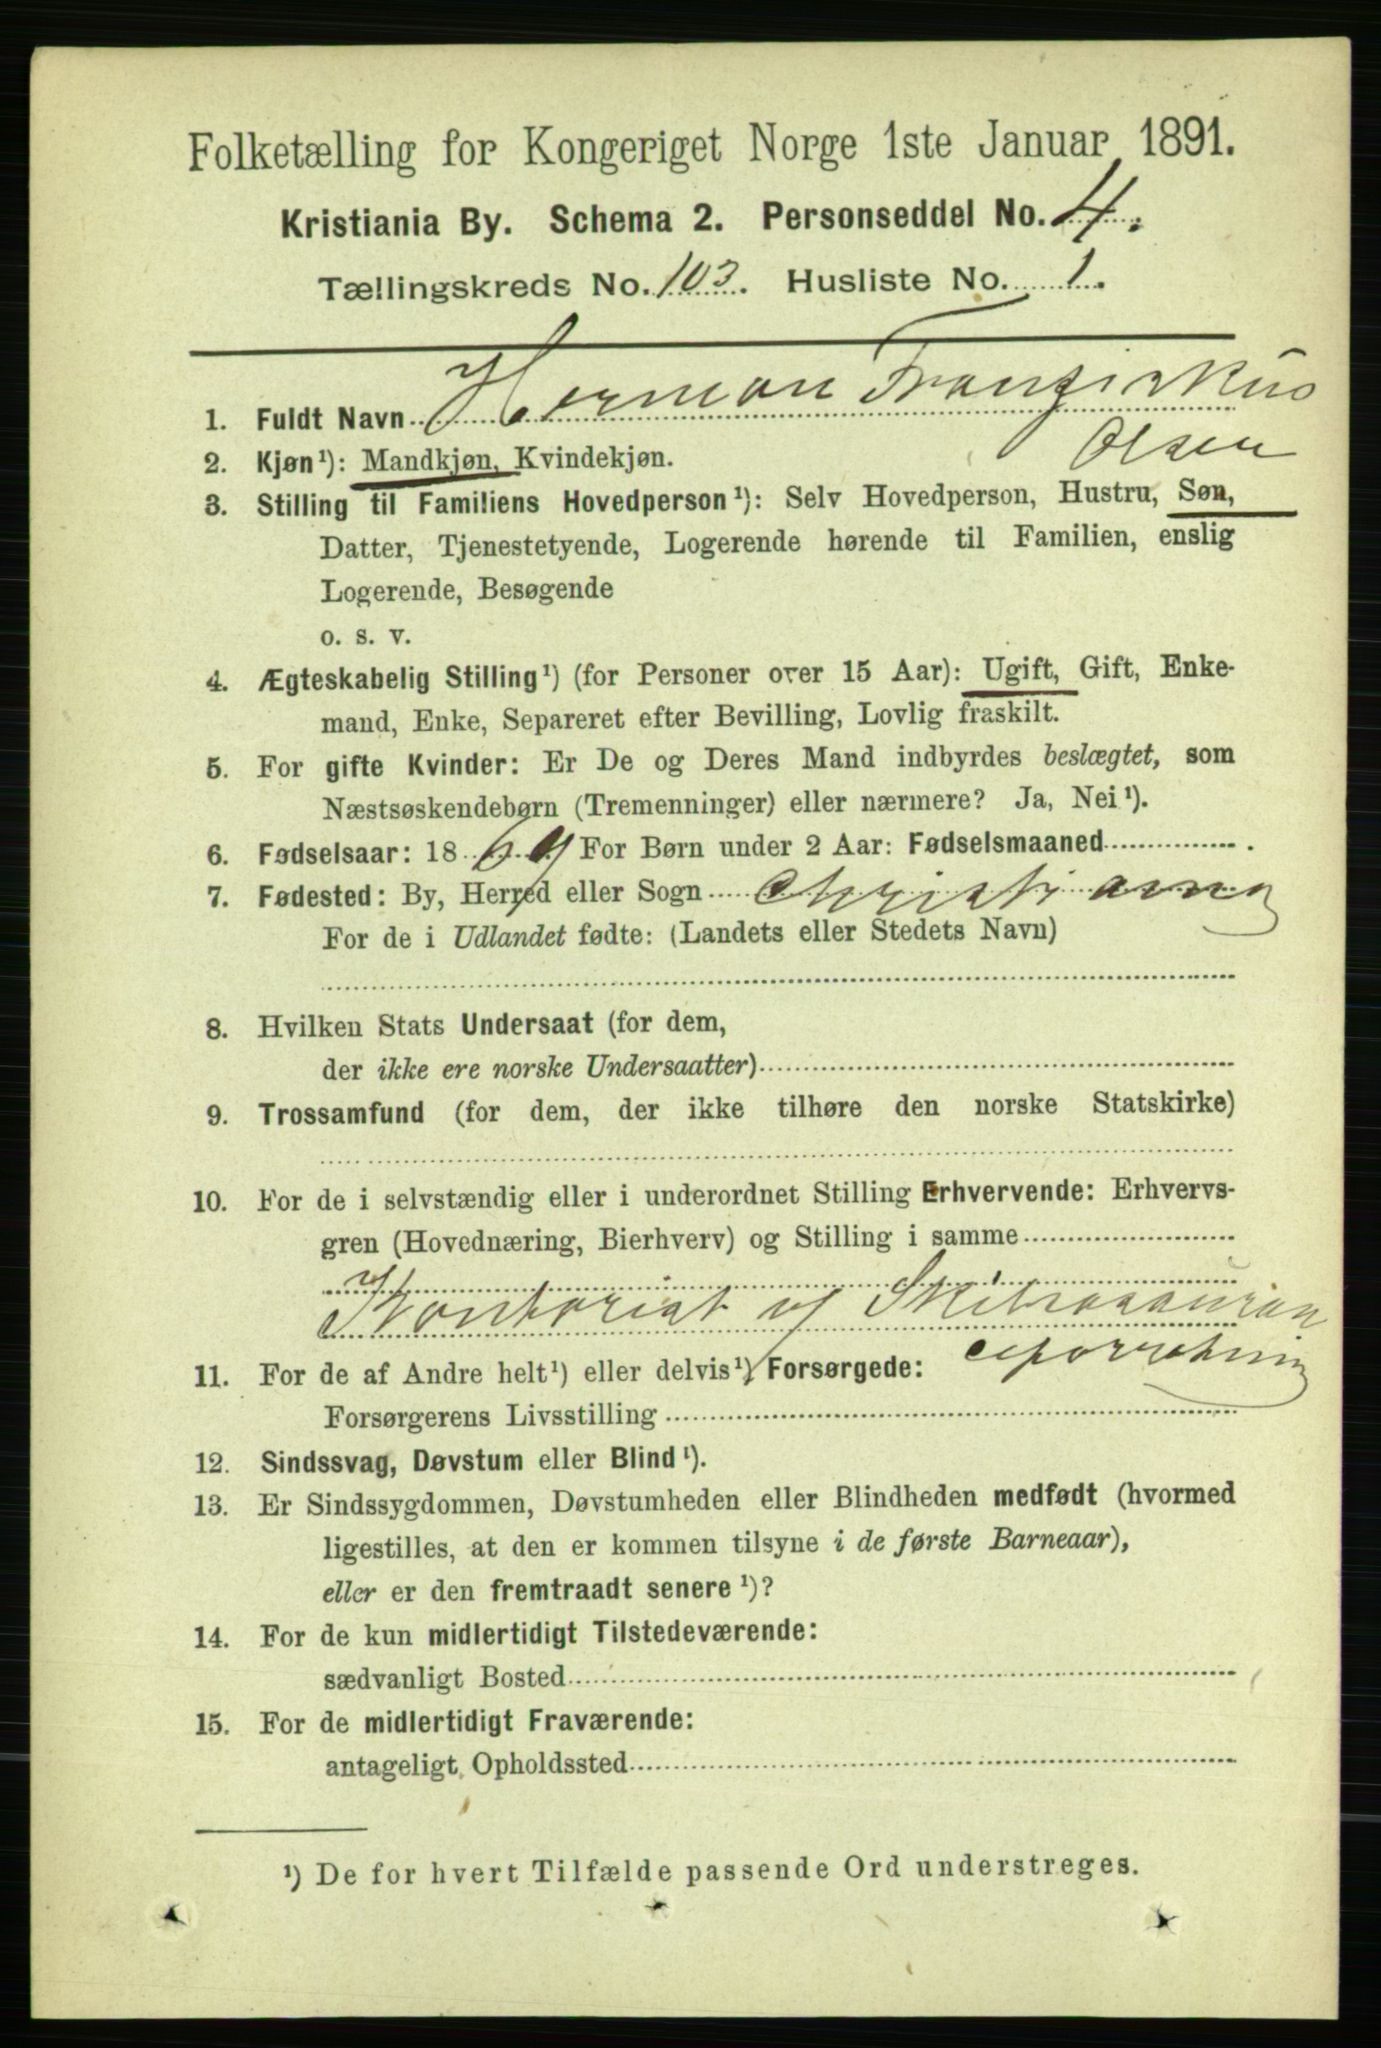 Folketælling for Kongeriget Norge 1ste Januar 1891.
Kristiania By. Schema 2. Personseddel No. 4.
Tællingskreds No. 103. Husliste No. 1.
1. Fuldt Navn Herman Franziskus
Olsen
2. Kjøn¹): Mandkjøn, Kvindekjøn.
3. Stilling til Familiens Hovedperson¹): Selv Hovedperson, Hustru, Søn,
Datter, Tjenestetyende, Logerende hørende til Familien, enslig
Logerende, Besøgende
o. s. v.
4. Ægteskabelig Stilling¹) (for Personer over 15 Aar): Ugift, Gift, Enke-
mand, Enke, Separeret efter Bevilling, Lovlig fraskilt.
5. For gifte Kvinder: Er De og Deres Mand indbyrdes beslægtet, som
Næstsøskendebørn (Tremenninger) eller nærmere? Ja, Nei¹).
6. Fødselsaar: 1869 For Børn under 2 Aar: Fødselsmaaned
7. Fødested: By, Herred eller Sogn Christiania
For de i Udlandet fødte: (Landets eller Stedets Navn)
8. Hvilken Stats Undersaat (for dem,
der ikke ere norske Undersaatter)
9. Trossamfund (for dem, der ikke tilhøre den norske Statskirke)
10. For de i selvstændig eller i underordnet Stilling Erhvervende: Erhvervs-
gren (Hovednæring, Bierhverv) og Stilling i samme
Kontorist
11. For de af Andre helt¹) eller delvis¹) Forsørgede:
Forsørgerens Livsstilling
12. Sindssvag, Døvstum eller Blind¹).
13. Er Sindssygdommen, Døvstumheden eller Blindheden medfødt (hvormed
ligestilles, at den er kommen tilsyne i de første Barneaar),
eller er den fremtraadt senere¹)?
14. For de kun midlertidigt Tilstedeværende:
sædvanligt Bosted
15. For de midlertidigt Fraværende:
antageligt Opholdssted
¹) De for hvert Tilfælde passende Ord understreges.